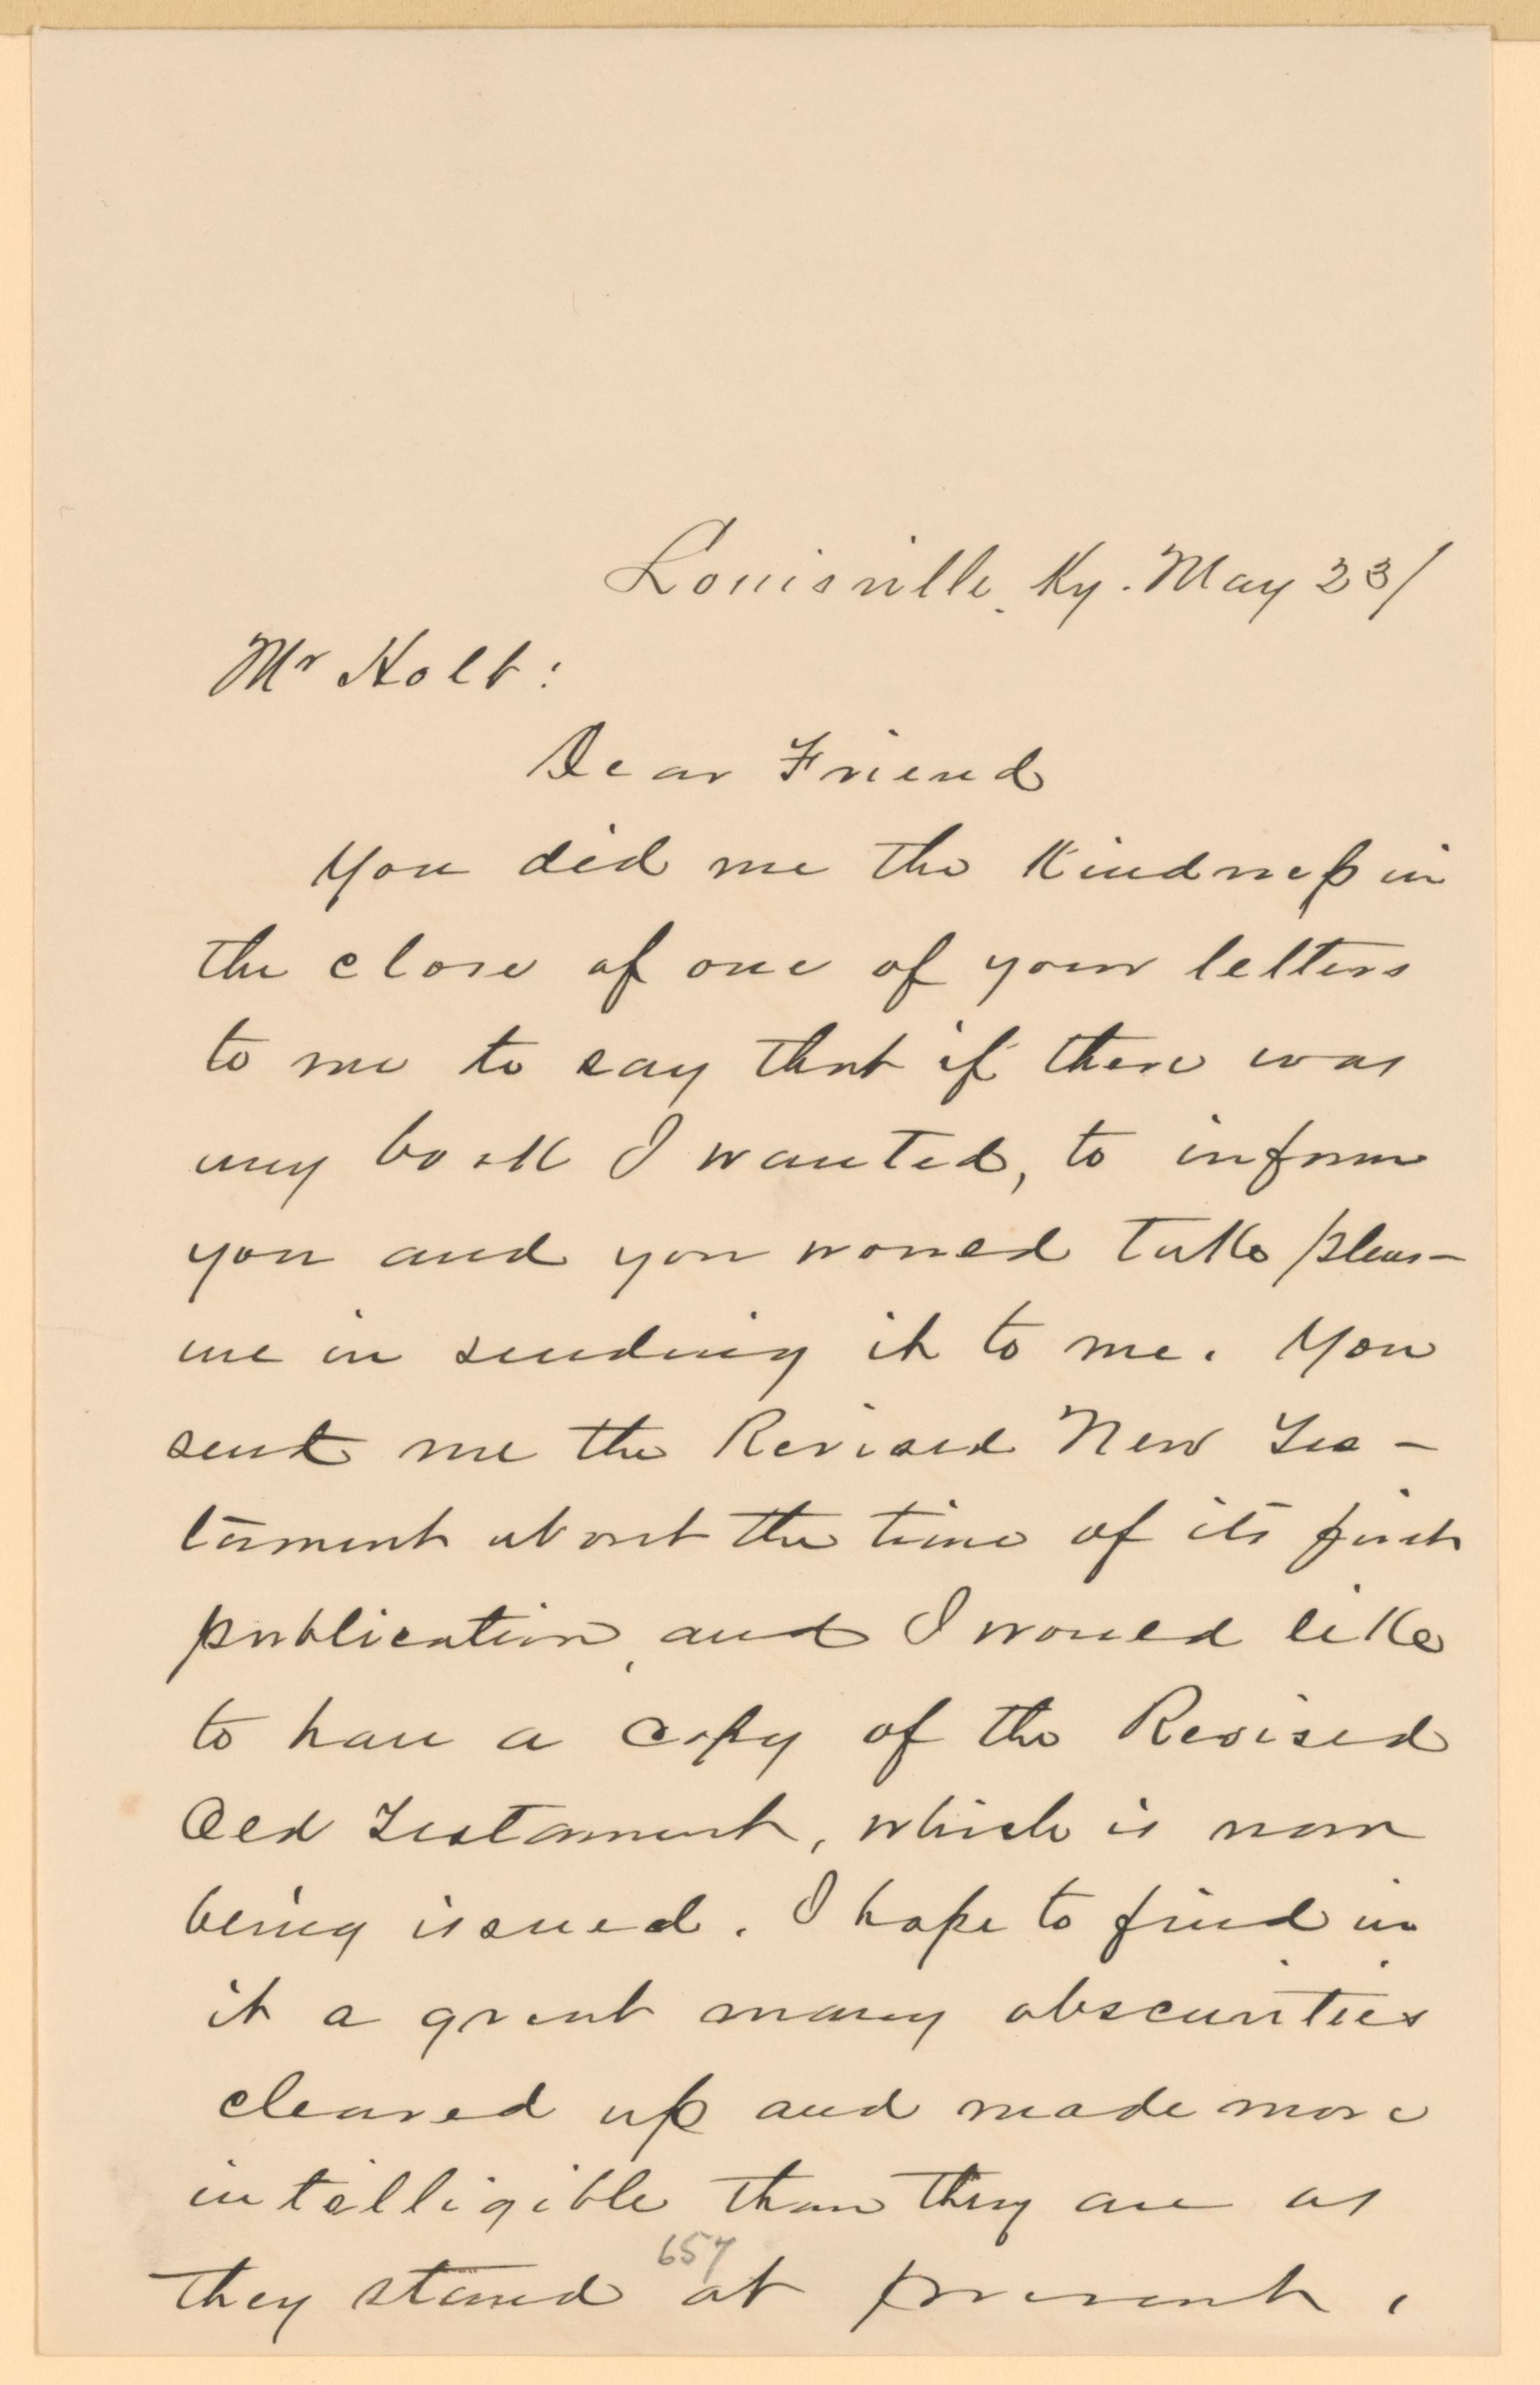 Louisville, Ky. May 23/
Mr Holt:
Dear Friend
You did me the Kindness in
the close of one of your letters
to me to say that if there was
any book I wanted, to inform
you and you would take pleas-
ure in sending it to me. You
sent me the Revised New Tes-
tament about the time of its first
publication, and I would like
to have a copy of the Revised
Old Testament, which is now
being issued. I hope to find in
it a great many obscurities
cleared up and made more
intelligible than they are as
657
they stand at present,